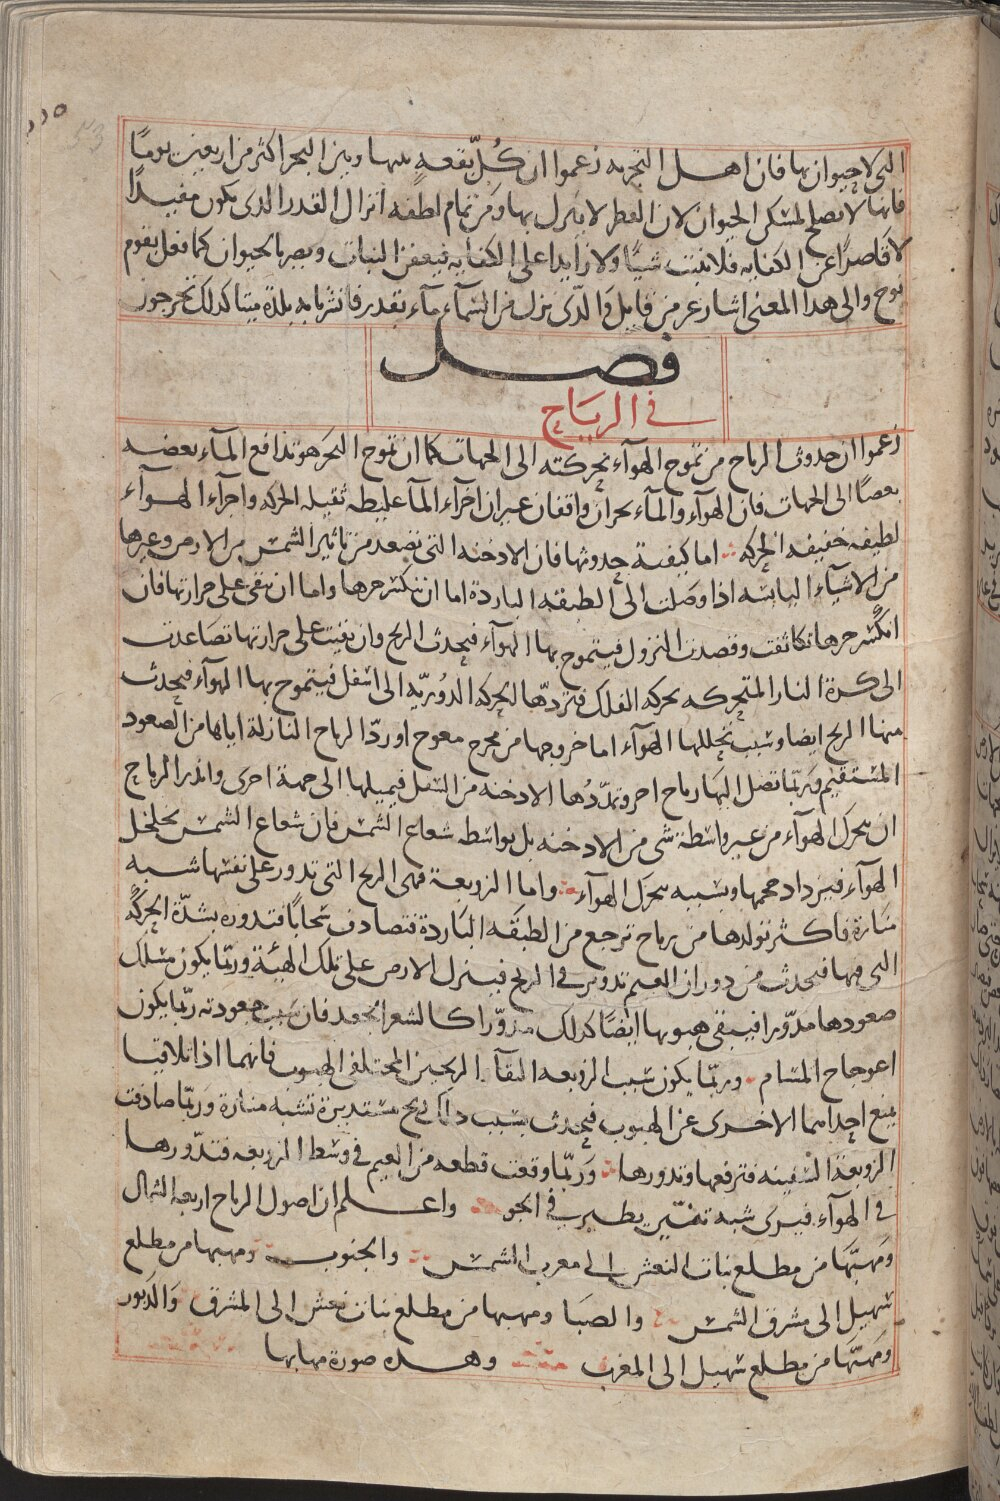 ١١٥
53
التى لا حيوان بها فان اهل التجربه زعموا ان كُلّ بقعه بينها وبين البحر اكثر من اربعين يومًا
فانها لا تصلح لمسكن الحيوان لان القطر لا ينزل بها ومن تمام لطفه انزال القدر الذى يكون مفيدًا
لا قاصرًا عن الكفايه فلا ينبت شيًا ولا زايدا على الكفايه فيعفن النبات ويضر بالحيوان كما فعل بقوم
نوح والى هذا المعنى اشار عز من قايل والذى نزل من السمآء مآء بقدر فانشرنا به بلدة ميتا كذلك تخرجون
فصل
فى الرياح
زعموا ان حدوث الرياح من تموج الهوآء بحركته الى الجهات كما ان تموج البحر هو تدافع المآء بعضه
بعضًا الى الجهات فان الهوآء والمآء بحران واقفان غير ان اجزآء المآ غليظه ثقيله الحركه واجزآء الهوآء
لطيفه خفيفه الحركه اما كيفية حدوثها فان الادخنه التى تصعد من تاثير الشمس من الارض وغيرها
من الاشيآء اليابسه اذا وصلت الى الطبقه الباردة اما ان ينكسر حرها واما ان تبقى على حرارتها فان
انكسر حرها تكاثفت وقصدت النزول فيتموج بها الهوآء فيحدث الريح وان بقيت على حرارتها تصاعدت
الى كرة النار المتحركه بحركه الفلك فتردّها الحركه الدوريّه الى اسفل فيتموج بها الهوآء فيحدث
منها الريح ايضا وسبب تخللها الهوآء اما خروجها من مخرج معوج او ردّ الرياح النازلة اياها من الصعود
المستقيم وربما تصل اليها رياح اخر وتمدّدها الادخنه من السفل فيميلها الى جهة اخرى واندر الرياح
ان يتحرك الهوآء من غير واسطة شى من الادخنه بل بواسطه شعاع الشمس فان شعاع الشمس يخلخل
الهوآء فيزداد حجمها وبسببه يتحرك الهوآء واما الزوبعة فهى الريح التى تدور على نفسها شبه
منارة فاكثر تولدها من رياح ترجع من الطبقه الباردة فتصادف سحابًا فتدوره بشدّة الحركه
التى فيها فيحدث من دوران الغيم تدوير فى الريح فينزل الارض على تلك الهيئة وربما يكون مسلك
صعودها مدوّرا فيبقى هبوبها ايضًا كذلك مدوّرا كالشعر الجعد فان سبب جعودته ربّما يكون
اعوجاج المسام وربّما يكون سبب الزوبعه التقآ الريحين المختلفى الهبوب فانهما اذا تلاقيا
يمنع احداهما الاخرى عن الهبوب فيحدث بسبب ذلك ريح مستديرة تشبه منارة وربّما صادفت
الزوبعة السفينه فترفعها وتدورها وربّما وقعت قطعه من الغيم فى وسط الزوبعه فتدّورها
فى الهوآء فيرى شبه تنّين يطير فى الجو واعلم ان اصول الرياح اربعه الشمال
ومهبّها من مطلع بنات النعش الى مغرب الشمس والجنوب ومهبها من مطلع
سهيل الى مشرق الشمس والصبا ومهبها من مطلع بنات نعش الى المشرق والدبور
ومهبّها من مطلع سهيل الى المغرب وهذه صورة مهابها